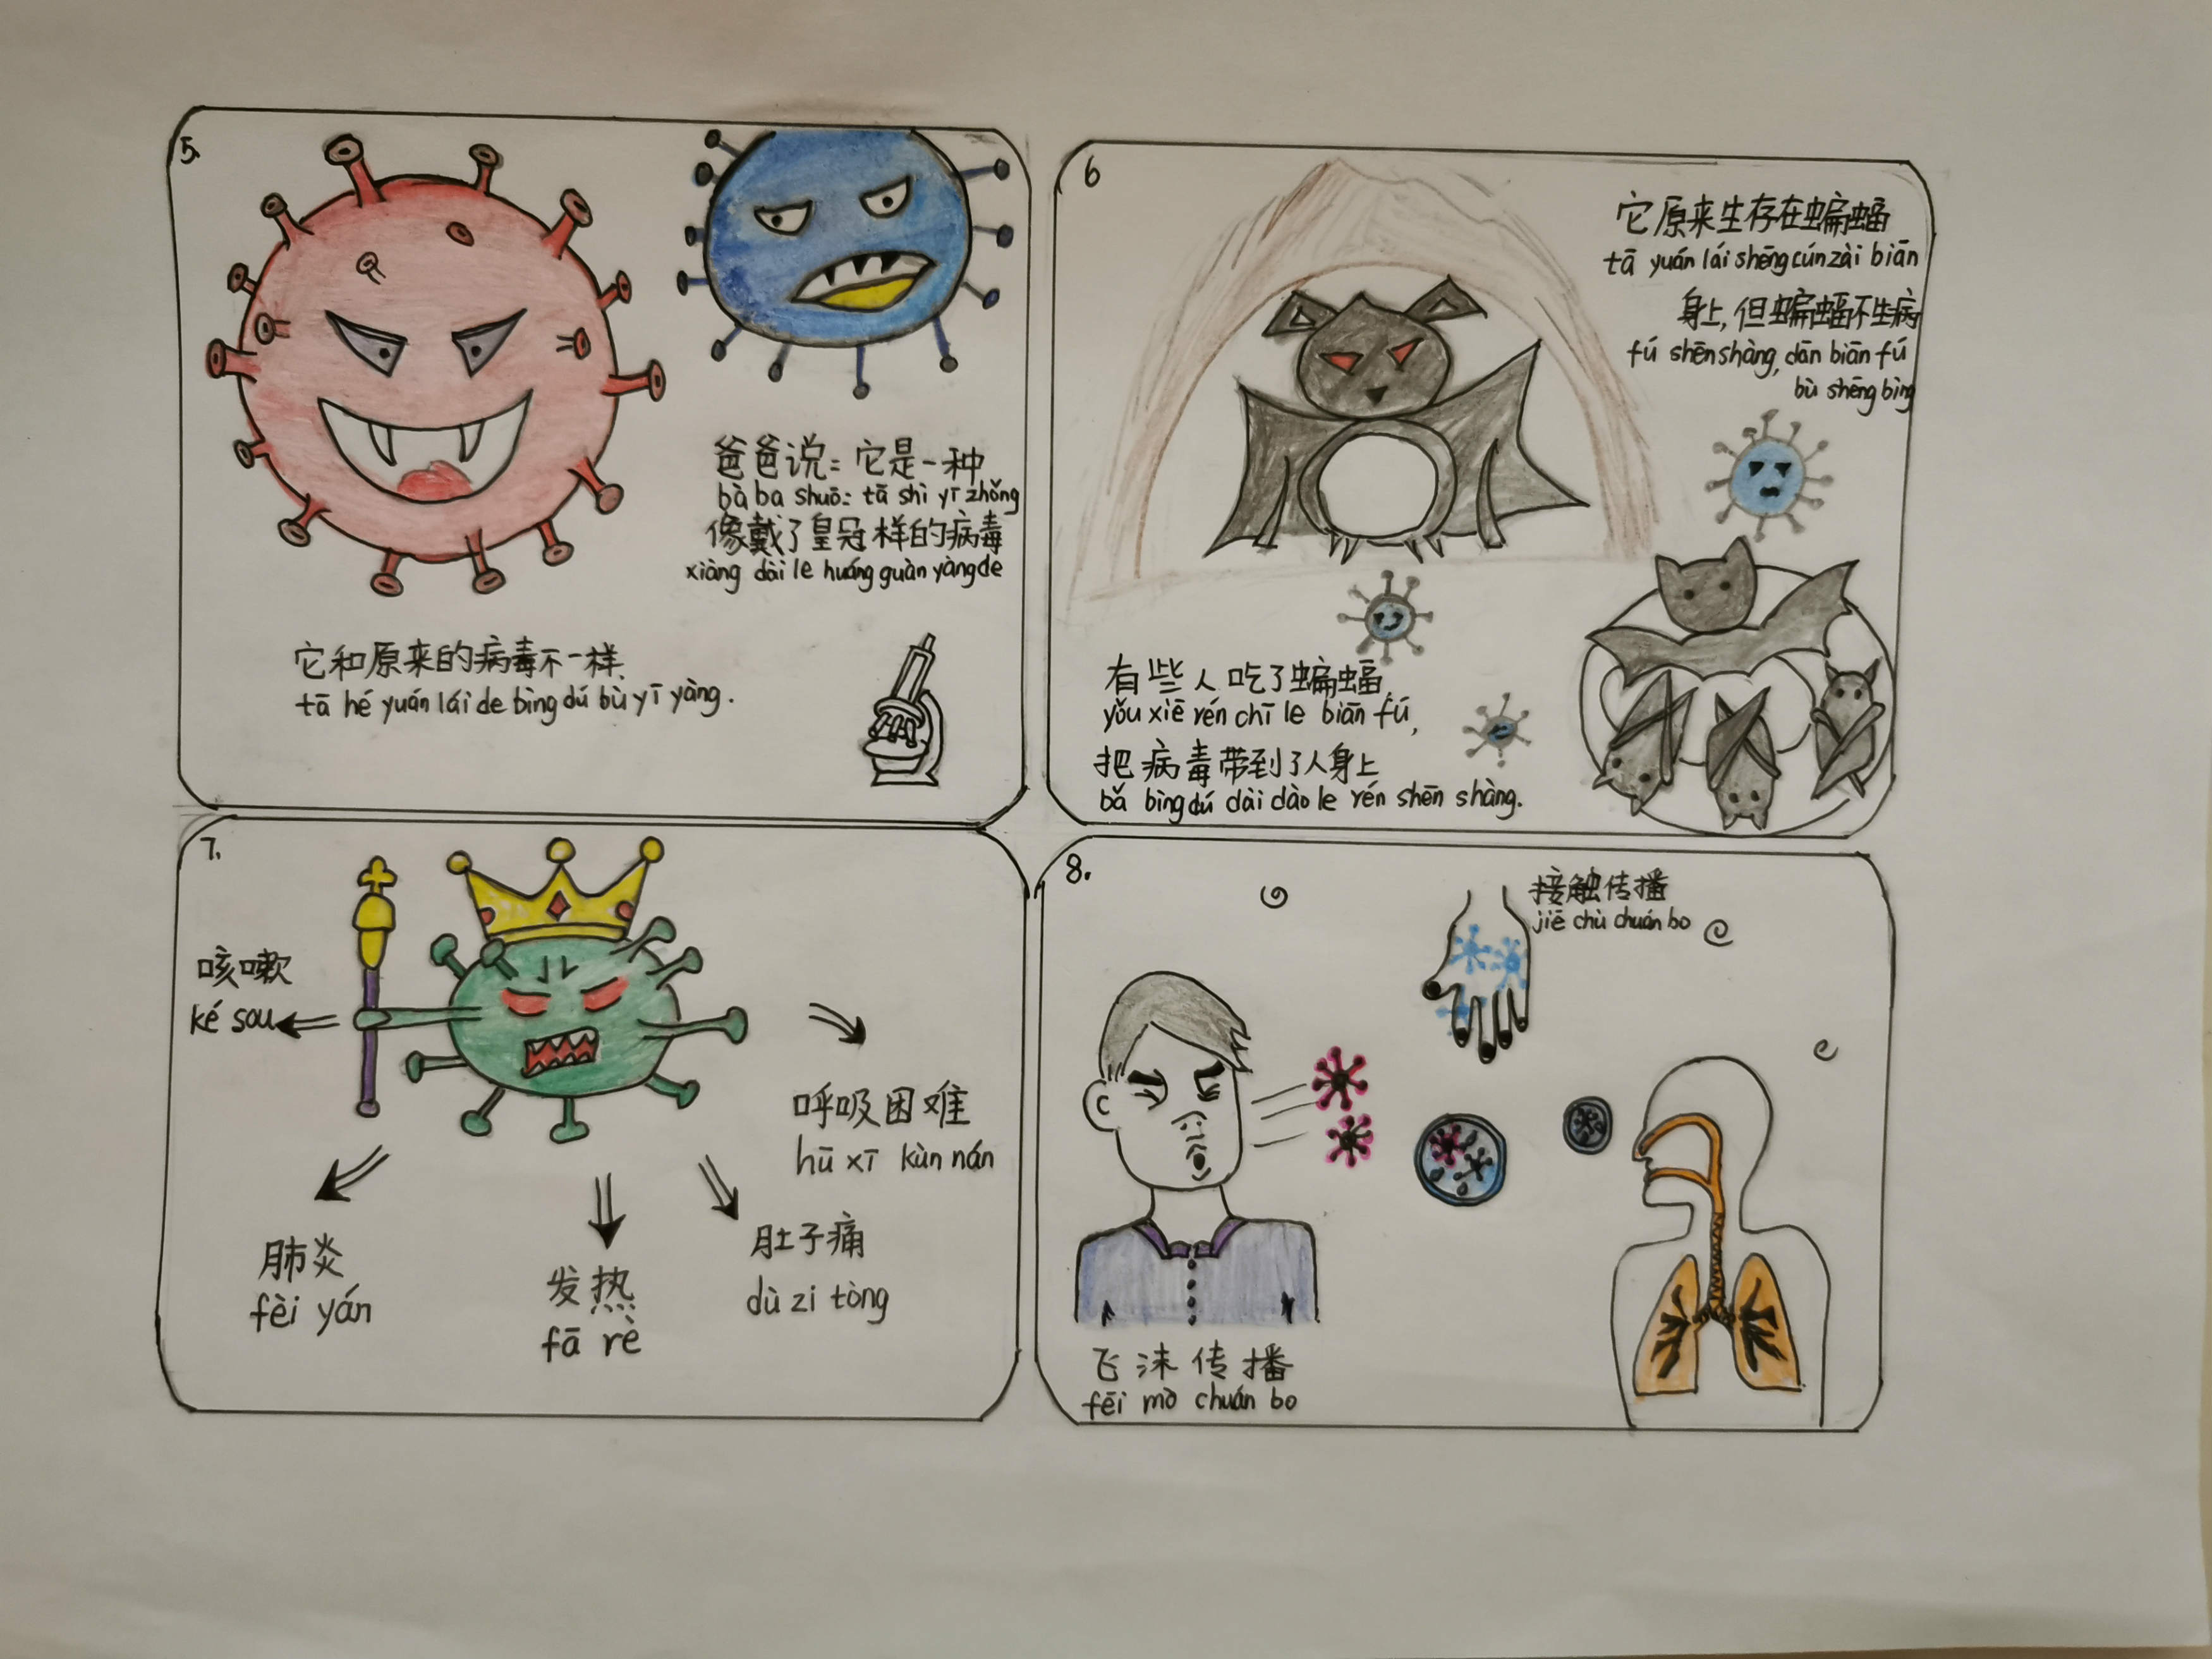 5.
爸爸说：它是一种
bà ba shuō: tā shì yī zhǒng
像戴了皇冠样的病毒
xiàng dài le huáng guàn yàng de
它和原来的病毒不一样.
tā hé yuán lái de bìng dú bù yī yàng.
6
它原来生存在蝙蝠
tā yuán lái shēng cún zài biān
身上，但蝙蝠不生病
fú shēn shàng, dān biān fú
bù shēng bìng
有些人吃了蝙蝠,
yǒu xiē rén chī le biān fú,
把病毒带到了人身上
bǎ bìng dú dài dào le rén shēn shàng.
7.
咳嗽
ké sou
呼吸困难
hū xī kùn nán
肺炎
fèi yán
发热
fā rè
肚子痛
dù zi tòng
8.
接触传播
jiē chù chuán bo
飞沫传播
fēi mò chuán bo